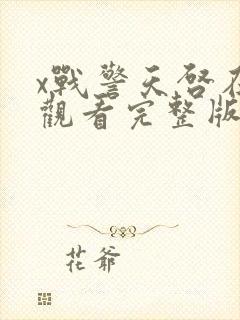 x戰警天啓在
觀看完整版
花爺